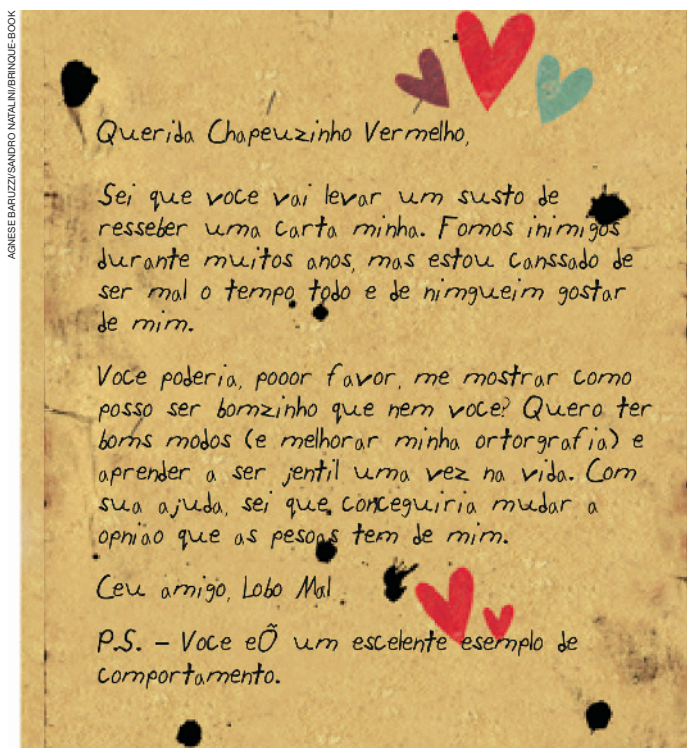 AGNESE BARUZZI/SANDRO NATALINI/BRINQUE-BOOK
Querida Chapeuzinho Vermelho,
Sei que voce vai levar um susto de
resseber uma carta minha. Fomos inimigos
durante muitos anos, mas estou canssado de
ser mal o tempo todo e de nimgueim gostar
de mim.
Voce poderia, pooor favor, me mostrar como
posso ser bomzinho que nem voce? Quero ter
boms modos (e melhorar minha ortorgrafia) e
aprender a ser jentil uma vez na vida. Com
sua ajuda, sei que conceguiria mudar a
opniao que as pesoas tem de mim.
Ceu amigo, Lobo Mal
P.S. – Voce eÕ um escelente esemplo de
comportamento.